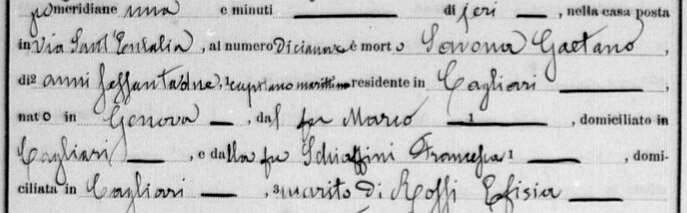 pomeridiane una e minuti — di jeri —, nella casa posta
in Via Sant'Eulalia, al numero Diciannove è morto Savona Gaetano,
di anni sessantadue, capitano marittimo residente in Cagliari —
nato in Genova —, dal fu Marco —, domiciliato in
Cagliari —, e dalla fu Schiaffini Francesca —, domi-
ciliata in Cagliari —, marito di Rossi Efisia —